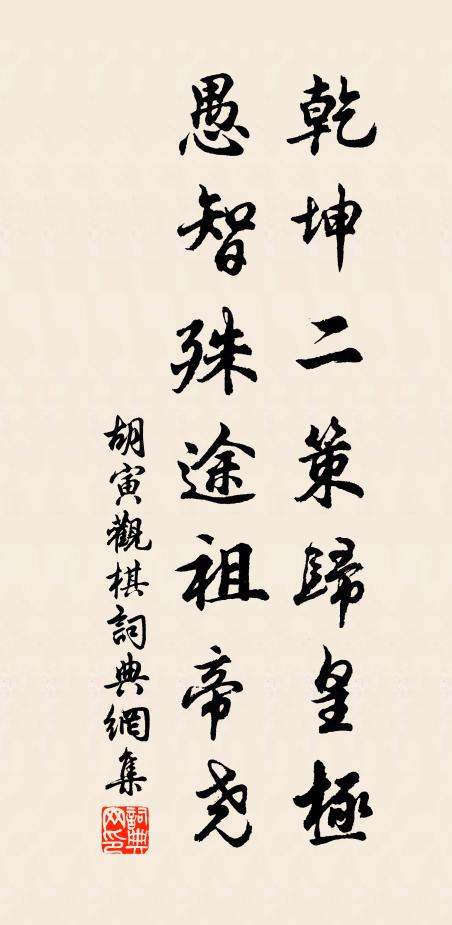 乾坤二策歸皇極
愚智殊途祖帝尧
胡寅觀棋詞典網集
詞典網印